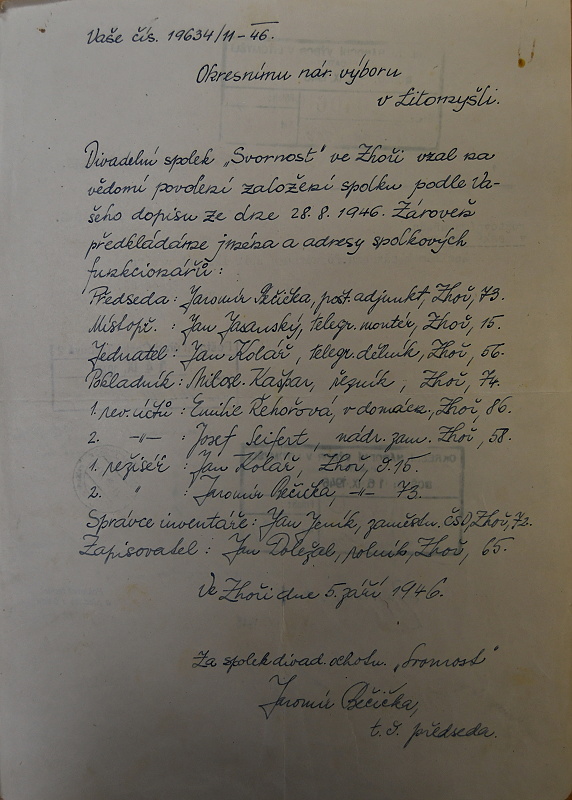 Vaše čís. 19634/11-46.
Okresnímu nár. výboru
v Litomyšli.
Divadelní spolek „Svornost" ve Zhoři vzal na
vědomí povolení založení spolku podle Va-
šeho dopisu ze dne 28.8.1946. Zároveň
předkládáme jména a adresy spolkových
funkcionářů:
Předseda: Jaromír Bečička, pošt. adjunkt, Zhoř, 73.
Místopř. : Jan Jasanský, telegr. montér, Zhoř, 15.
Jednatel: Jan Kolář, telegr. dělník, Zhoř, 56.
Pokladník: Milosl. Kašpar, řezník, Zhoř, 74.
1. rev. účtů: Emilie Řehořová, v domácn., Zhoř, 86.
2. -„- : Josef Seifert, nádr. zam. Zhoř, 58.
1. režisér: Jan Kolář, Zhoř,
2. " : Jaromír Bečička, -„- 73.
Správce inventáře: Jan Jeník, zaměstn. ČSD, Zhoř, 72.
Zapisovatel: Jan Doležal, rolník, Zhoř, 65.
Ve Zhoři dne 5. září 1946.
Za spolek divad. ochotn. „Svornost"
Jaromír Bečička,
t. č. předseda.